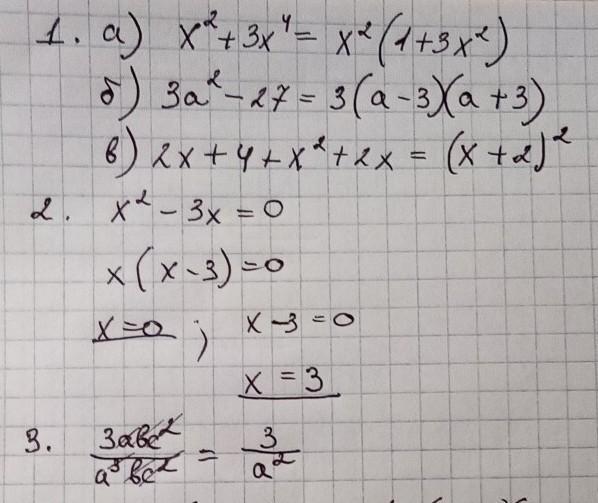 1. а) x² + 3x⁴ = x²(1 + 3x²)
б) 3a² - 27 = 3(a - 3)(a + 3)
в) 2x + 4 + x² + 2x = (x + 2)²
2. x² - 3x = 0
x(x - 3) = 0
x = 0 ; x - 3 = 0
x = 3
3. 3abc²/a³bc² = 3/a²